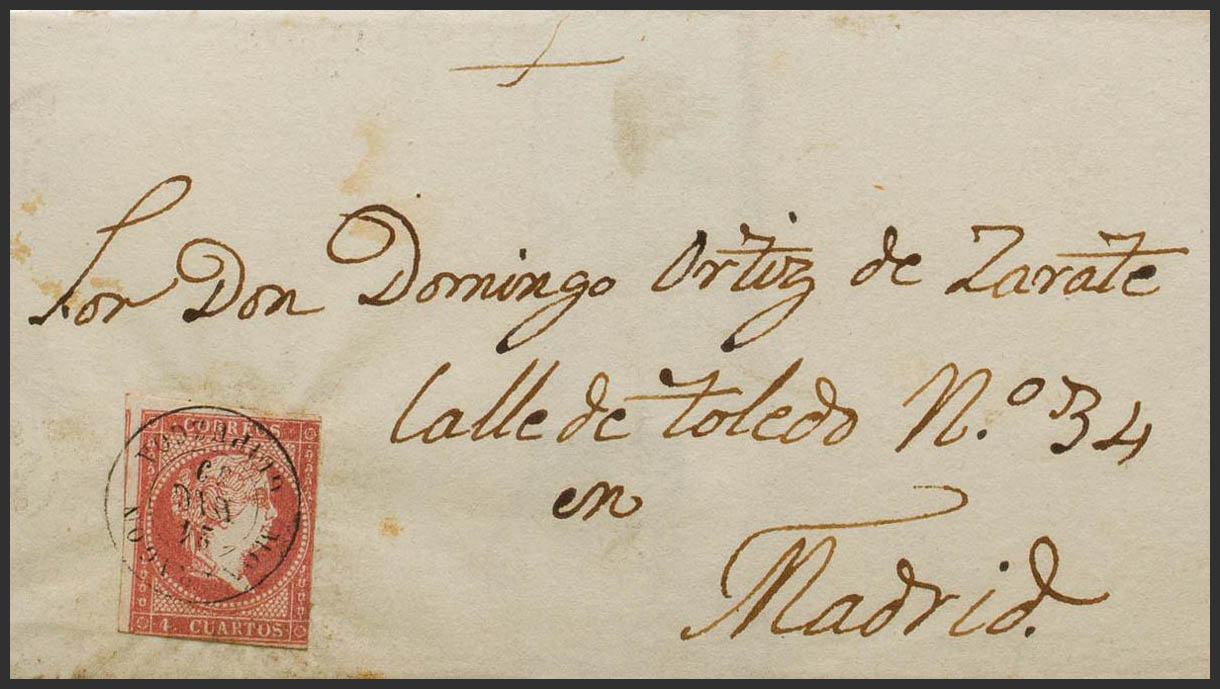 Sor Don Domingo Ortiz de Zarate
Calle de Toledo N.º 34
en
Madrid.
CORREOS
4 CUARTOS
GUIPUZCOA